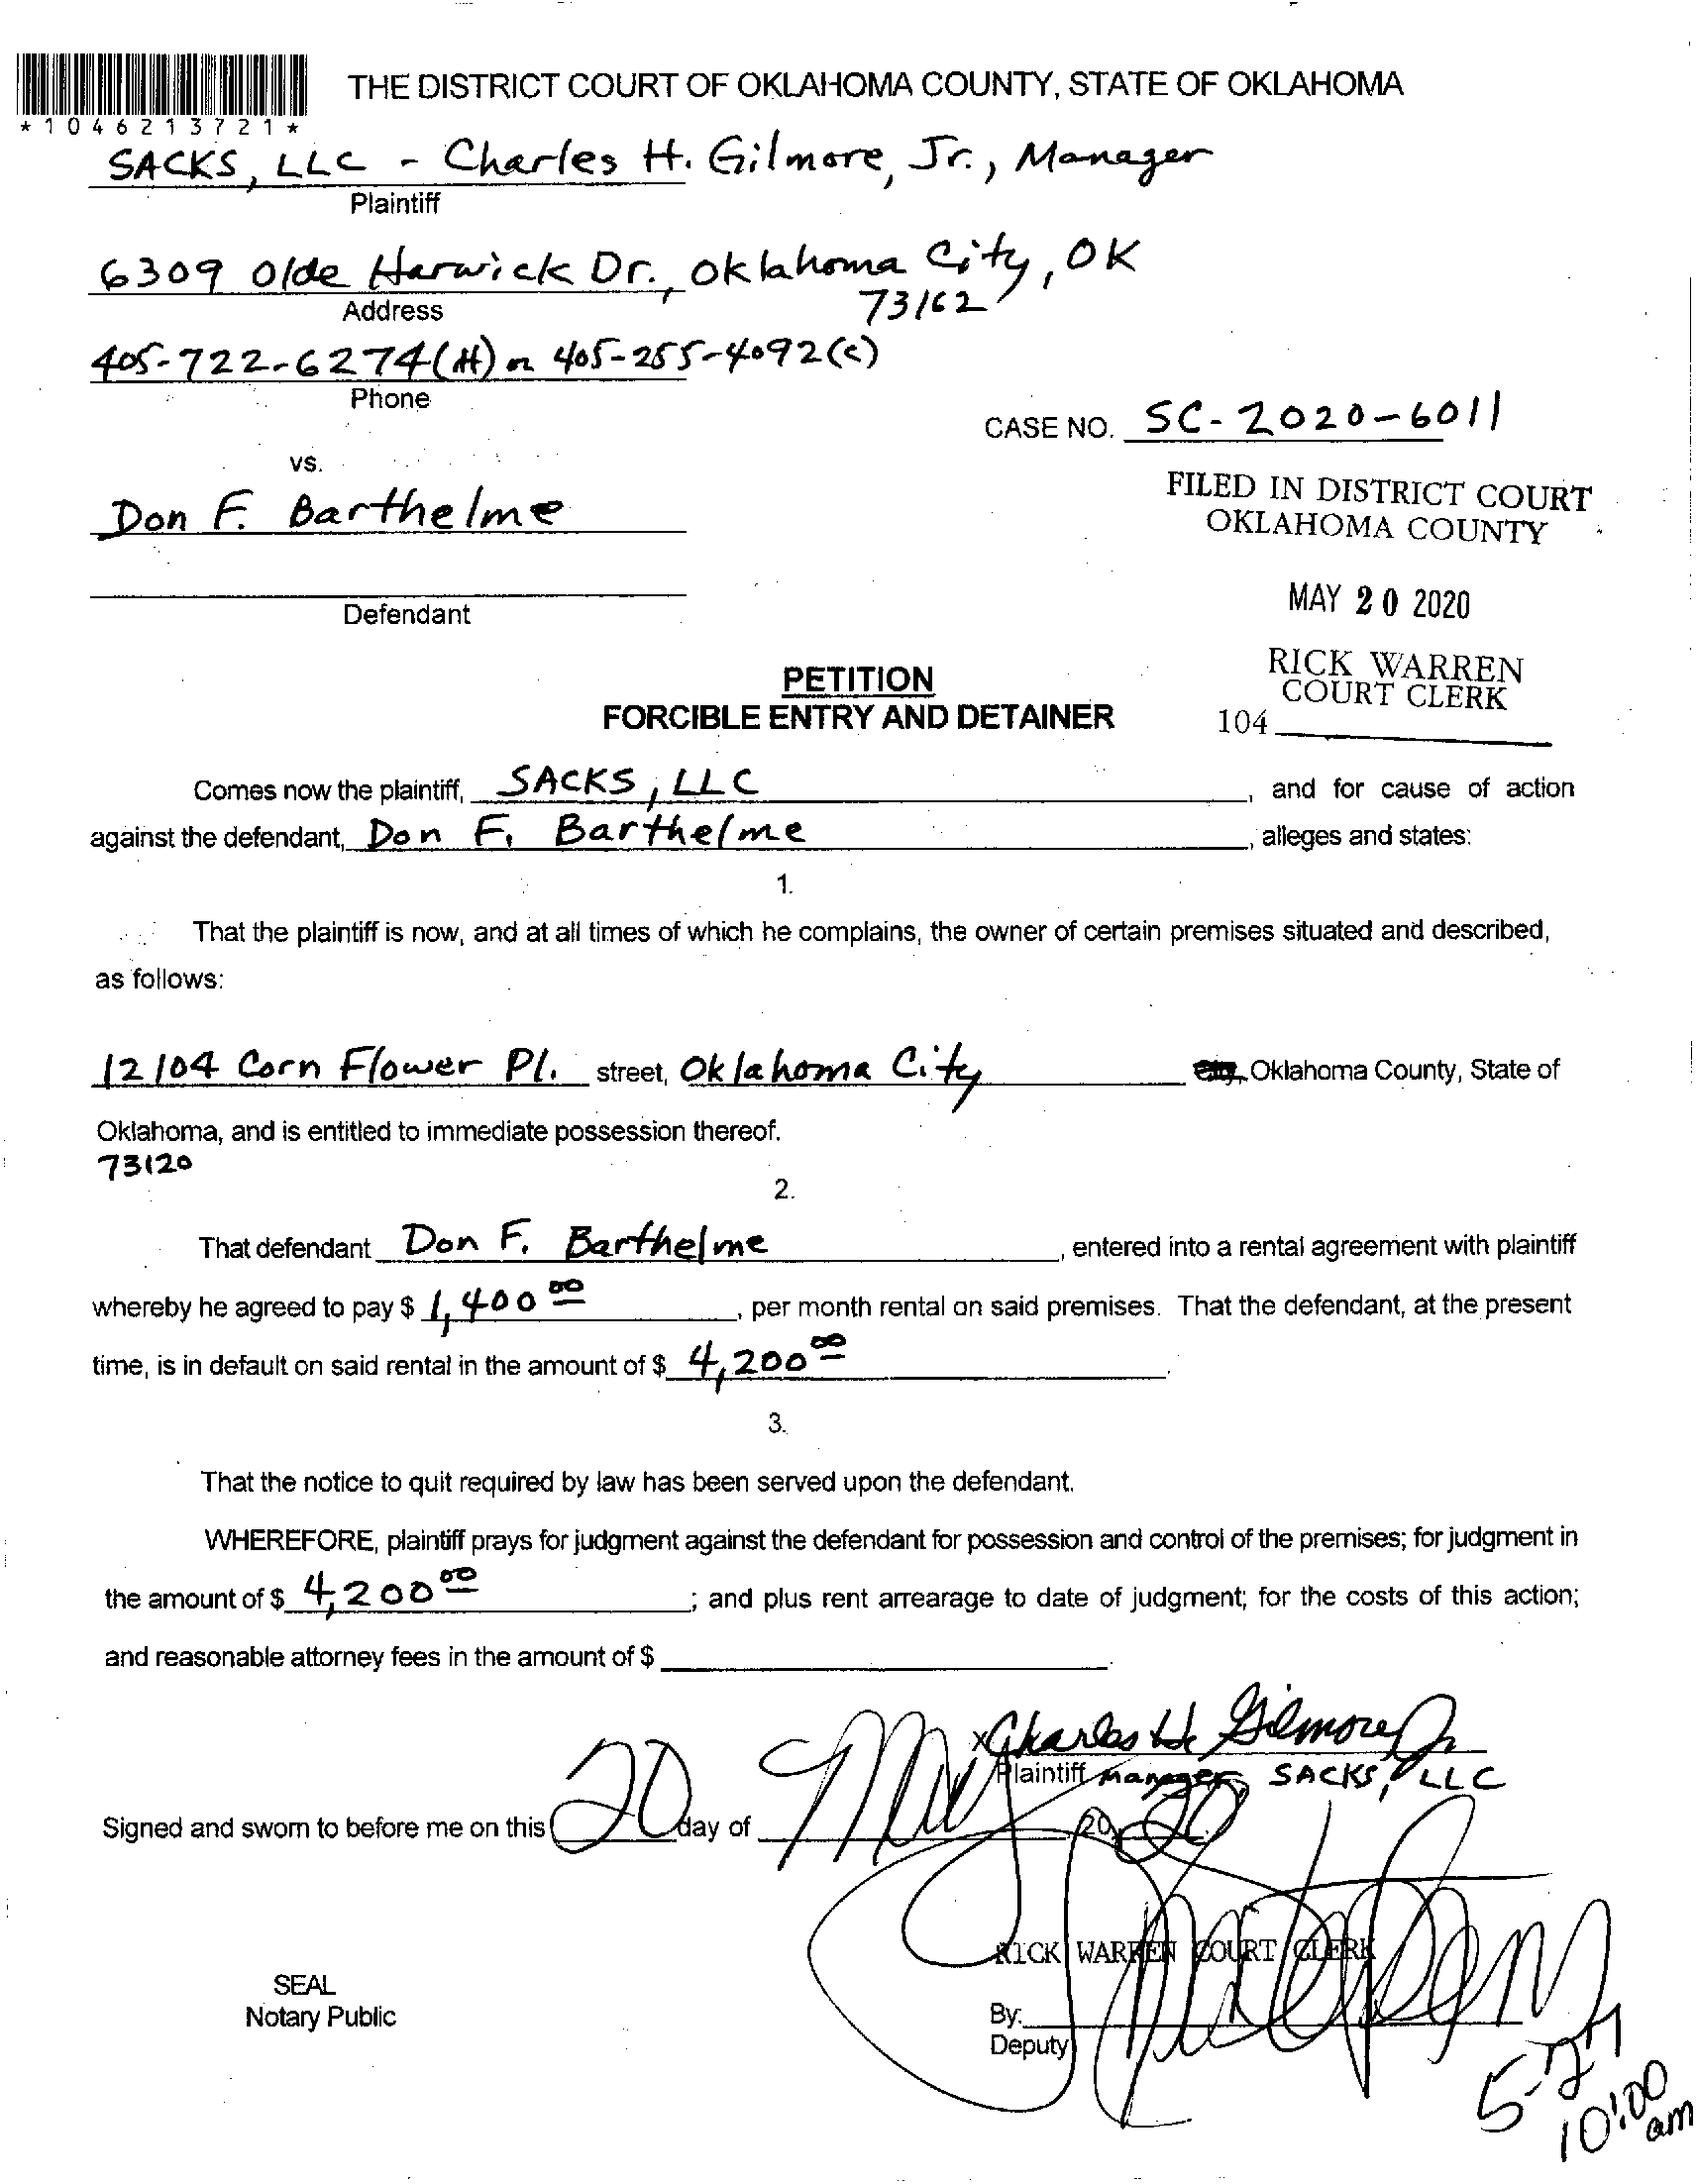 THE DISTRICT COURT OF OKLAHOMA COUNTY, STATE OF OKLAHOMA
*1046213721*
SACKS, LLC - Charles H. Gilmore, Jr., Manager
Plaintiff
6309 Olde Harwick Dr., Oklahoma City, OK
73162
Address
405-722-6274(H) or 405-255-4092(c)
Phone
CASE NO. SC-2020-6011
vs.
FILED IN DISTRICT COURT
OKLAHOMA COUNTY
Don F. Barthelme
MAY 20 2020
Defendant
RICK WARREN
COURT CLERK
104
PETITION
FORCIBLE ENTRY AND DETAINER
Comes now the plaintiff, SACKS, LLC, and for cause of action
against the defendant, Don F. Barthelme, alleges and states:
1.
That the plaintiff is now, and at all times of which he complains, the owner of certain premises situated and described,
as follows:
12104 Corn Flower Pl. street, Oklahoma City, Oklahoma County, State of
Oklahoma, and is entitled to immediate possession thereof.
73120
2.
That defendant Don F. Barthelme, entered into a rental agreement with plaintiff
whereby he agreed to pay $ 1,400 00, per month rental on said premises. That the defendant, at the present
time, is in default on said rental in the amount of $ 4,200 00.
3.
That the notice to quit required by law has been served upon the defendant.
WHEREFORE, plaintiff prays for judgment against the defendant for possession and control of the premises; for judgment in
the amount of $ 4,200 00; and plus rent arrearage to date of judgment; for the costs of this action;
and reasonable attorney fees in the amount of $
x Charles H. Gilmore Jr
Plaintiff Manager SACKS, LLC
Signed and sworn to before me on this 20 day of May, 20 20.
RICK WARREN COURT CLERK
SEAL
Notary Public
By:
Deputy
5-27
10:00
am